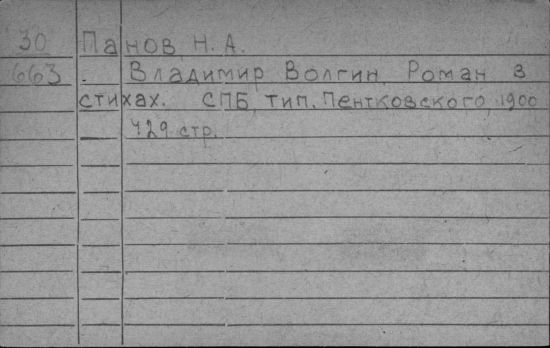 30 Панов Н. А.
663 Владимир Волгин. Роман в
стихах. СПБ, тип. Пентковского 1900
429 стр.